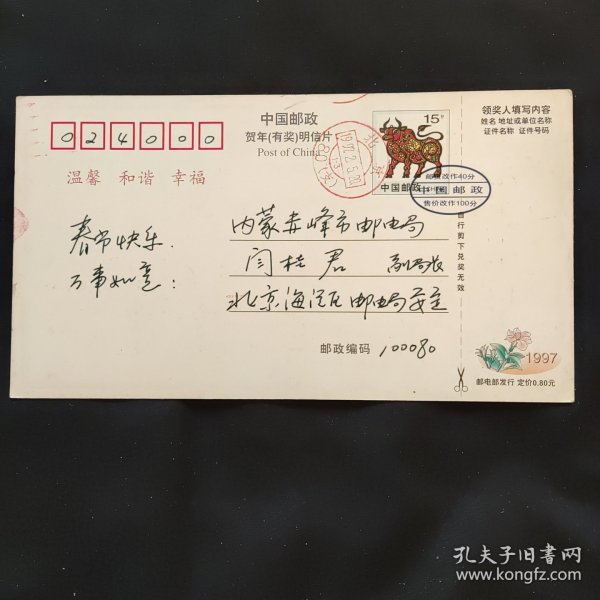 024000
中国邮政
贺年(有奖)明信片
Post of China
15分
中国邮政
邮资改作40分
中国邮政
售价改作100分
领奖人填写内容
姓名 地址或单位名称
证件名称 证件号码
温馨 和谐 幸福
春节快乐.
万事如意:
内蒙赤峰市邮电局
闫桂君 副局长
北京海淀区邮电局
邮政编码 100080
自行剪下兑奖无效
1997
邮电部发行 定价0.80元
孔夫子旧书网
www.kongfz.com